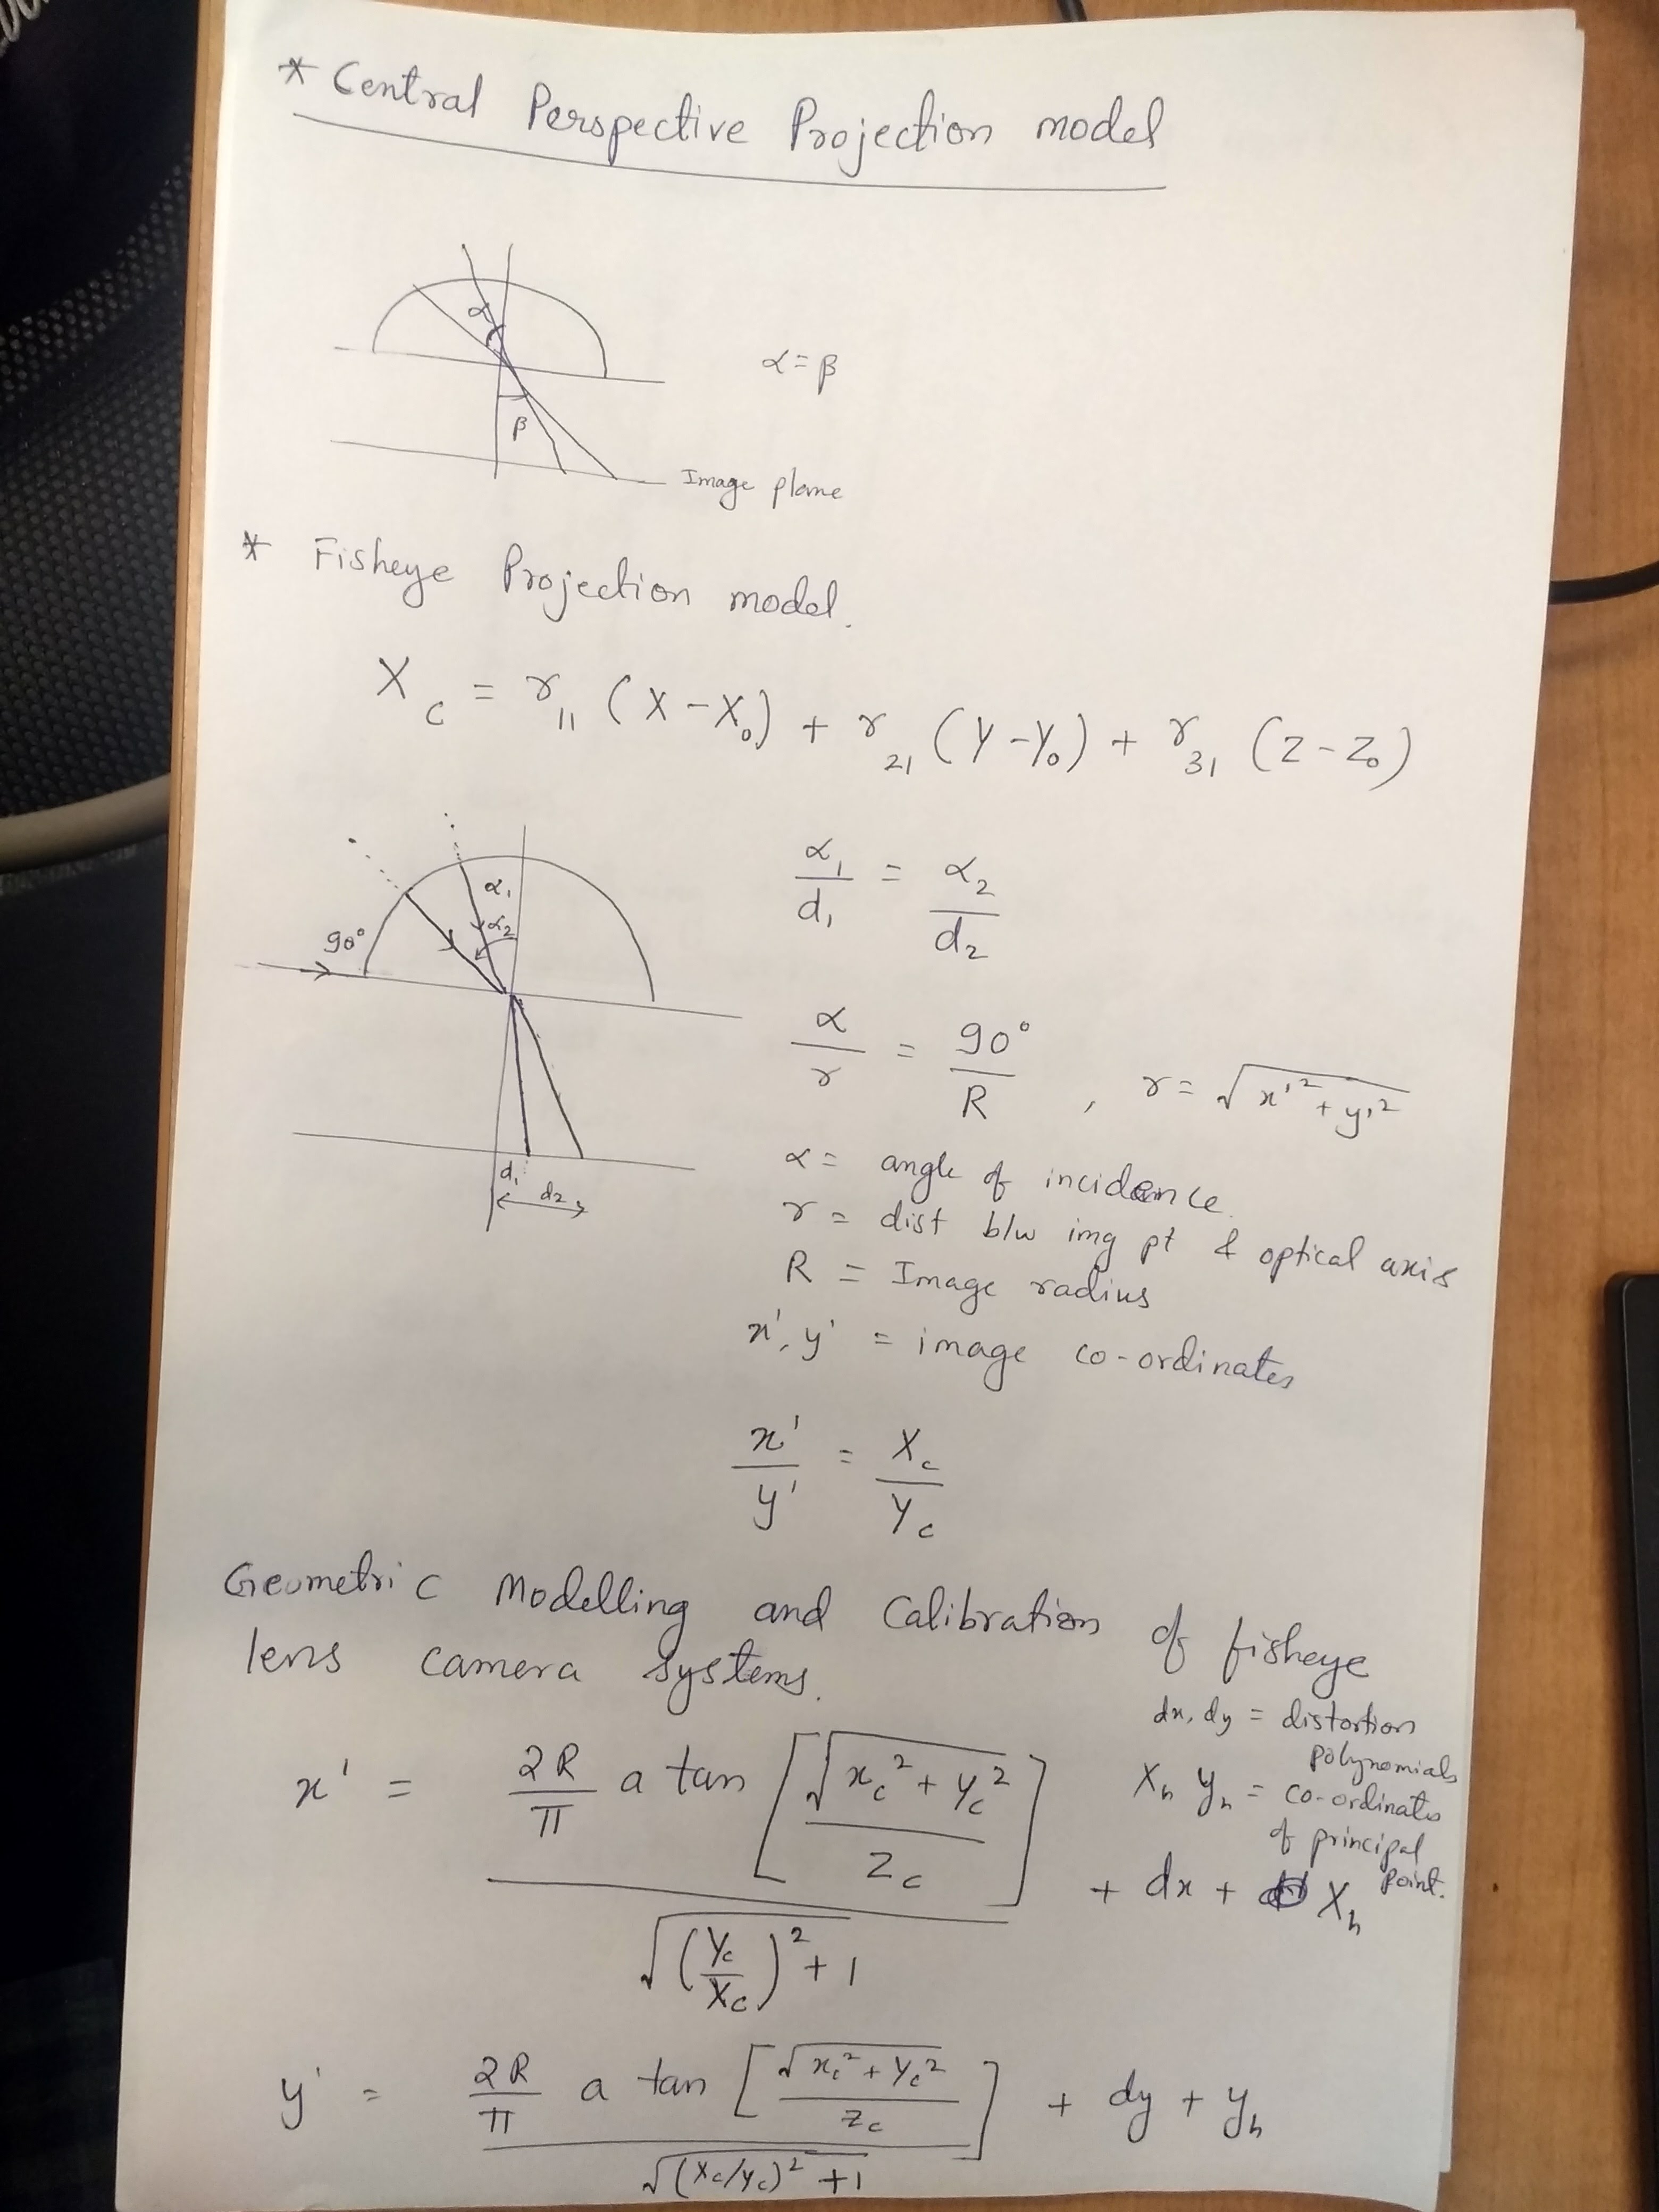 * Central Perspective Projection model
α
α = β
β
Image plane
* Fisheye Projection model.
X_c = r_11 (X - X_0) + r_21 (Y - Y_0) + r_31 (Z - Z_0)
α_1
α_2
90°
d_1
d_2
α_1/d_1 = α_2/d_2
α/r = 90°/R , r = √(x'² + y'²)
α = angle of incidence.
r = dist b/w img pt & optical axis
R = Image radius
x', y' = image co-ordinates
x'/y' = X_c/Y_c
Geometric Modelling and Calibration of fisheye
lens camera systems.
dx, dy = distortion
polynomials
X_h y_h = co-ordinates
of principal
point.
x' = (2R/π a tan [√(x_c² + y_c²)/z_c]) / √((Y_c/X_c)² + 1) + dx + X_h
y' = (2R/π a tan [√(x_c² + y_c²)/z_c]) / √((X_c/y_c)² + 1) + dy + y_h